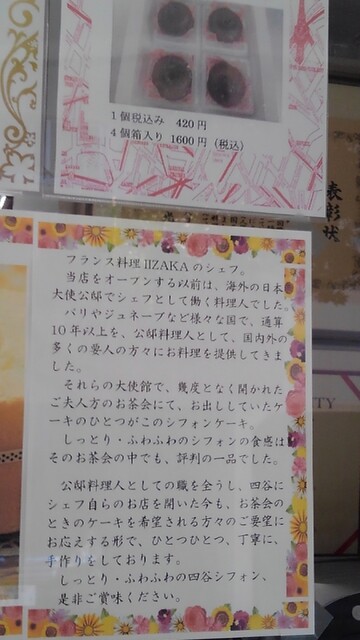 1個税込み 420円
4個箱入り 1600円(税込)
表彰状
フランス料理IIZAKAのシェフ。
当店をオープンする以前は、海外の日本
大使公邸でシェフとして働く料理人でした。
パリやジュネーブなど様々な国で、通算
10年以上を、公邸料理人として、国内外の
多くの要人の方々にお料理を提供してきま
した。
それらの大使館で、幾度となく開かれた
ご夫人方のお茶会にて、お出ししていたケ
ーキのひとつがこのシフォンケーキ。
しっとり・ふわふわのシフォンの食感は
そのお茶会の中でも、評判の一品でした。
公邸料理人としての職を全うし、四谷に
シェフ自らのお店を開いた今も、お茶会の
ときのケーキを希望される方々のご要望に
お応えする形で、ひとつひとつ、丁寧に、
手作りをしております。
しっとり・ふわふわの四谷シフォン、
是非ご賞味ください。